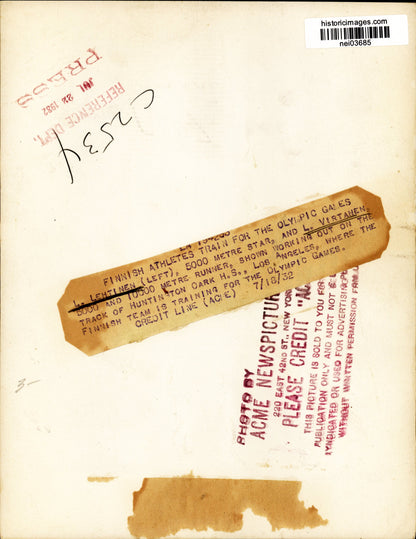 historicimages.com
nei03685
PRESS
JUL 22 1932
REFERENCE DEPT.
C2534
FINNISH ATHLETES TRAIN FOR THE OLYMPIC GAMES
L. LEHTINEN (LEFT), 5000 METRE STAR, AND L. VIRTANEN,
5000 AND 10000 METRE RUNNER, SHOWN WORKING OUT ON THE
TRACK OF HUNTINTON OARK H.S., LOS ANGELES, WHERE THE
FINNISH TEAM IS TRAINING FOR THE OLYMPIC GAMES.
CREDIT LINE (ACME) 7/18/32
PHOTO BY
ACME NEWSPICTUR
220 EAST 42ND ST., NEW YORK
PLEASE CREDIT "AC
THIS PICTURE IS SOLD TO YOU FOR
PUBLICATION ONLY AND MUST NOT BE
SYNDICATED OR USED FOR ADVERTISING P
WITHOUT WRITTEN PERMISSION FROM
3-